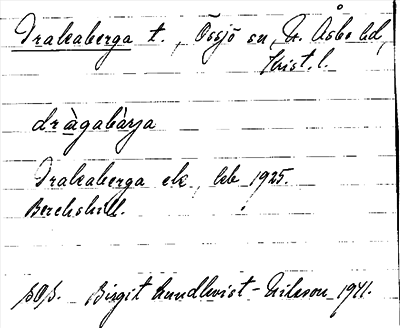 Drakaberga t., Össjö sn, N. Åsbo hd,
Krist. l.
dràgabàrja
Drakaberga ek, hbl 1925.
SOS. Birgit Lundkvist-Nilsson 1941.